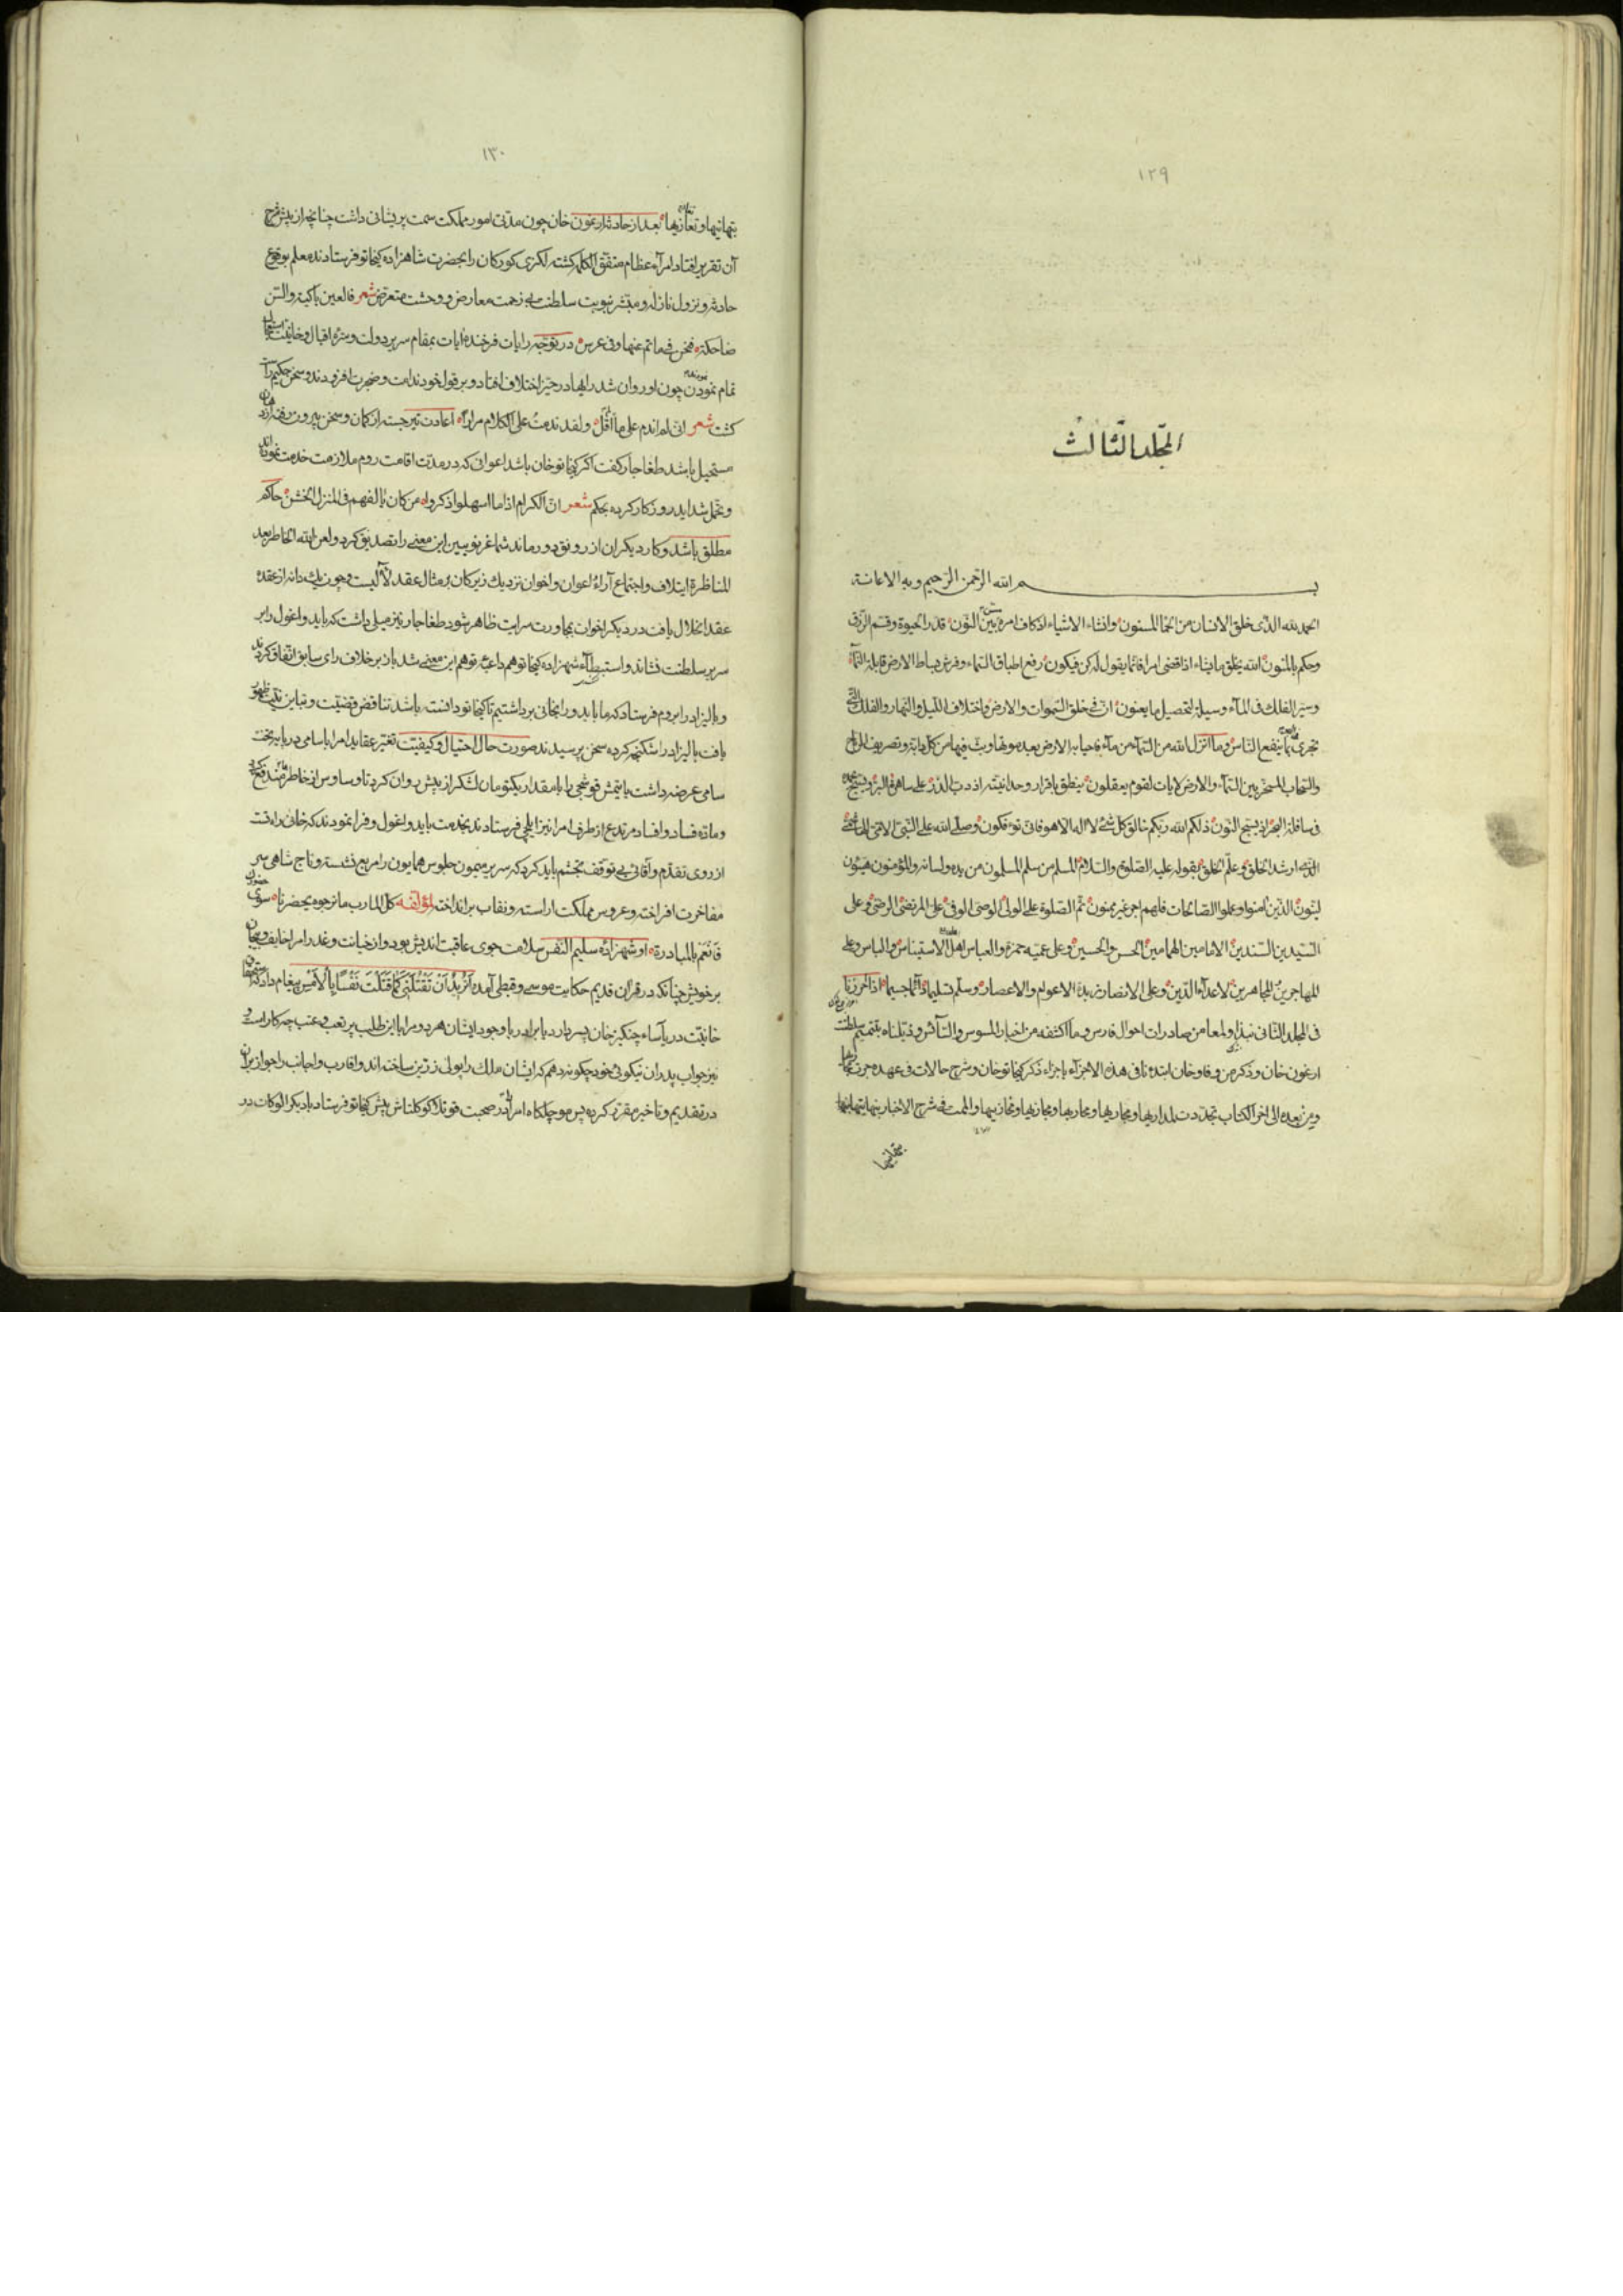 ١٢٩
المجلد الثالث
بسم الله الرحمن الرحیم وبه الاعانة
الحمد لله الذی خلق الانسان من الحمأ المسنون وانشاء الاشیاء اذ کاف امره بین النون قدر الحیوة وقسم الرزق
وحکم بالمنون الله یخلق ما یشاء اذا قضی امرا فانما یقول له کن فیکون رفع اطباق السماء وفرش بساط الارض قابلة النماء
وسیر الفلک فی الماء وسیلة لتحصیل ما یعنون ان فی خلق السموات والارض واختلاف اللیل والنهار والفلک التی
تجری بما ینفع الناس وما انزل الله من السماء من ماء فاحیا به الارض بعد موتها وبث فیها من کل دابة وتصریف الریاح
والسحاب المسخر بین السماء والارض لایات لقوم یعقلون ینطق باقرار وحدانیته اذ دب الذر علی ساهرة البر ویسبح بحمده
فی سافلة البحر اذ یسبح النون ذلکم الله ربکم خالق کل شئ لا اله الا هو فانی تؤفکون وصلی الله علی النبی الامی
ارشد الخلق وعلم الخلق بقوله علیه الصلوة والسلام المسلم من سلم المسلمون من یده ولسانه والمؤمنون هینون
لینون الذین امنوا وعملوا الصالحات فلهم اجر غیر ممنون ثم الصلوة علی الولی الوصی الوفی علی المرتضی الرضی وعلی
السیدین السندین الامامین الهمامین الحسن والحسین وعلی عمیه حمزة والعباس اهل الاستیناس والباس وعلی
المهاجرین المجاهرین لاعداء الدین وعلی الانصار زبدة الاعوام والاعصار وسلم تسلیما دائما جسیما اذا حررنا
فی المجلد الثانی نبذا ولمعا من صادرات احوال فارس وما اکتنفه من اخبار السوس والتاثر وذیلناه بتتمیم سلطنت
ارغون خان وذکر من وفاو خان ابتدءنا فی هذه الاجزاء باجزاء ذکر کیخاتو خان وشرح حالات فی عهده جرت
ومن بعده الی اخر الکتاب تجددت بمداریها ومجاریها ومحاربها ومجازیها ومخازیها والممت فی شرح الاخبار بنهایتها
بتهانیها
١٣٠
بتهانیها وتعازیها بعد از حادثه ارغون خان چون مدتی امور مملکت سمت پریشانی داشت چنانچه از پیش شرح
آن تقریر افتاد امراء عظام متفق الکلمه کشته لکزی کورکان را بحضرت شاهزاده کیخاتو فرستادند معلم بوقوع
حادثه ونزول نازله ومبشر بنوبت سلطنت بی زحمت معارض ووحشت متعرض شعر فالعین باکیة والسن
ضاحکة فنحن فی ماتم عنها وفی عرس در توجه رایات فرخنده ایات بمقام سریر دولت ومتره اقبال وخانیت
تمام نمودن چون او روان شد رایها در حیز اختلاف افتاد وبر قول خود ندامت وضجرت افزودند وسخن حکیم
کشت شعر انی لم اندم علی ما لم اقل ولقد ندمت علی الکلام مرارا اعادت تیر جسته از کمان وسخن بیرون رفته از
مستحیل باشد طغاجار کفت اکر کیخاتو خان باشد اعوانی که در مدت اقامت روم ملازمت خدمت نموده
وتحمل شداید روزکار کرده بحکم شعر ان الکرام اذا ما اسهلوا ذکروا من کان یالفهم فی المنزل الخشن حاکم
مطلق باشد وکار دیکران از رونق دور ماند شما غر نویین این معنی را تصدیق کرد ولعن الله الخاطر بعد
المناظرة ایتلاف واجتماع آراء اعوان واخوان نزدیک زیرکان بر مثال عقد لآلیست وچون یک دانه از عقدۀ
عقد انحلال یافت در دیکر اخوان بمجاورت سرایت ظاهر شود طغاجار نیز میلی داشت که بایدو اغول را بر
سریر سلطنت نشاند واستبطاء شهزاده کیخاتو هم داعیه توهم این معنی شد باز بر خلاف رای سابق اتفاق کردند
وبالیزاد را بروم فرستاد که ما بایدو را بخانی برداشتیم تا کیخاتو دانسته باشد تناقض قضیت وتباین
یافت بالیزاد را شکنجه کرده سخن پرسیدند صورت حال احتیال وکیفیت تغیر عقاید امرا باسامی در پایه تخت
سامی عرضه داشت بایتمش قوشچی را با مقدار یکتومان لشکر از پیش روان کرد تا وساوس از خاطر
وماده فساد وافساد مرتدع از طرف امرا نیز ایلچی فرستادند بخدمت بایدو اغول وفرا نمودند که خانی را
از روی تقدم وآقائی بی توقف تجشم باید کرد که سریر میمون جلوس همایون را مربع نشسته وتاج شاهی سر
مفاخرت افراخته وعروس مملکت اراسته ونقاب برانداخته لمؤلفه کل المارب ما نرجوه یحضرنا سوی
فانعم بالمبادرة او شهزاده سلیم النفس سلامت جوی عاقبت اندیش بود واز خیانت وغدر امرا خایف
بر خویش چنانکه در قران قدیم حکایت موسی وقبطی آمده اترید ان تقتلنی کما قتلت نفسا بالامس پیغام داد که
خانیت در یاساء چنکیز خان پسر یا برادر با وجود ایشان هر دو مرا با این طلب پر تعب وعتب چه کار است
نیز جواب پدران نیکوئی خود چکونه دهم که ایشان ملک را بولی زرین ساخته اند واقارب واجانب را جواز
در تقدیم وتاخیر مقرر کرده پس موچلکاه امرا در صحبت قوتلا کوکلتاش پیش کیخاتو فرستاد بار دیکر الوکات در